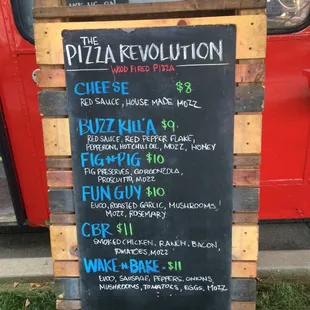 THE
PIZZA REVOLUTION
WOOD FIRED PIZZA
CHEESE $8
RED SAUCE, HOUSE MADE MOZZ
BUZZ KILL'A $9
RED SAUCE, RED PEPPER FLAKE,
PEPPERONI, HOT CHILI OIL, MOZZ, HONEY
FIG N PIG $10
FIG PRESERVES, GORGONZOLA,
PROSCIUTTO, MOZZ
FUN GUY $10
EVOO, ROASTED GARLIC, MUSHROOMS,
MOZZ, ROSEMARY
CBR $11
SMOKED CHICKEN, RANCH, BACON,
TOMATOES, MOZZ
WAKE-N-BAKE - $11
EVOO, SAUSAGE, PEPPERS, ONIONS,
MUSHROOMS, TOMATOES, EGGS, MOZZ